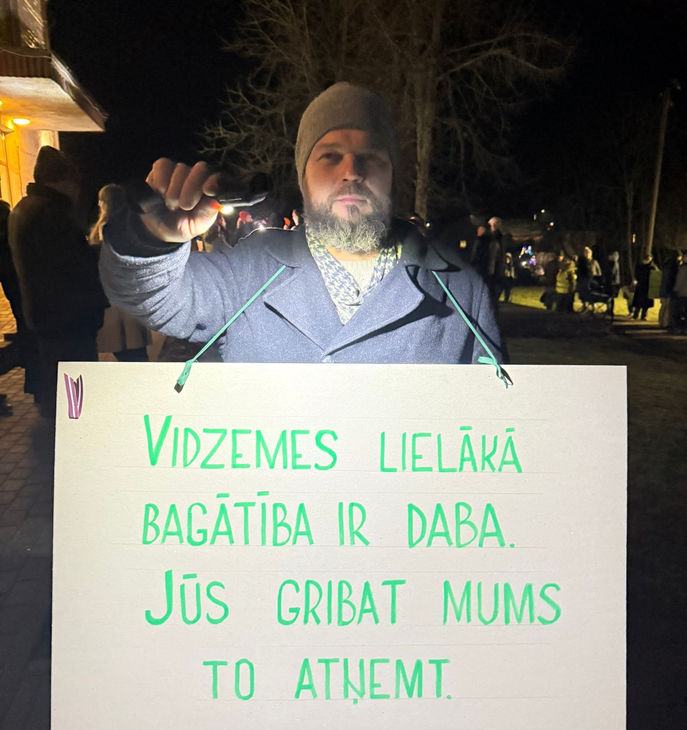 VIDZEMES LIELĀKĀ
BAGĀTĪBA IR DABA.
JŪS GRIBAT MUMS
TO ATŅEMT.